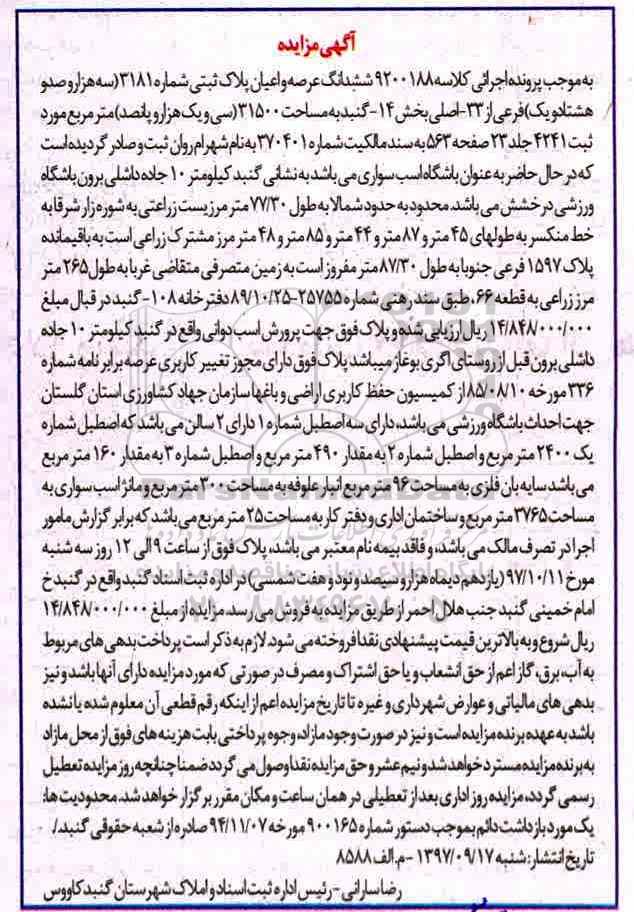 آگهی مزایده
به موجب پرونده اجرائی کلاسه ۹۲۰۰۱۸۸ ششدانگ عرصه و اعیان پلاک ثبتی شماره ۳۱۸۱(سه هزار و صدو
هشتادو یک) فرعی از ۳۳-اصلی بخش ۱۴- گنبد به مساحت ۳۱۵۰۰ (سی و یک هزار و پانصد) متر مربع مورد
ثبت ۴۲۴۱ جلد ۲۳ صفحه ۵۶۳ به سند مالکیت شماره ۳۷۰۴۰۱ به نام شهرام روان ثبت و صادر گردیده است
که در حال حاضر به عنوان باشگاه اسب سواری می باشد به نشانی گنبد کیلومتر ۱۰ جاده داشلی برون باشگاه
ورزشی درخشش می باشد. محدود به حدود شمالا به طول ۷۷/۳۰ متر مرزیست زراعتی به شوره زار شرقا به
خط منکسر به طولهای ۴۵ متر و ۸۷ متر و ۴۴ متر و ۸۵ متر و ۴۸ متر مرز مشترک زراعی است به باقیمانده
پلاک ۱۵۹۷ فرعی جنوبا به طول ۸۷/۳۰ متر مفروز است به زمین متصرفی متقاضی غربا به طول ۲۶۵ متر
مرز زراعی به قطعه ۶۶، طبق سند رهنی شماره ۲۵۷۵۵-۸۹/۱۰/۲۵ دفترخانه ۱۰۸- گنبد در قبال مبلغ
۱۴/۸۴۸/۰۰۰/۰۰۰ ریال ارزیابی شده و پلاک فوق جهت پرورش اسب دوانی واقع در گنبد کیلومتر ۱۰ جاده
داشلی برون قبل از روستای اگری بوغاز میباشد پلاک فوق دارای مجوز تغییر کاربری عرصه برابر نامه شماره
۳۳۶ مورخه ۸۵/۰۸/۱۰ از کمیسیون حفظ کاربری اراضی و باغها سازمان جهاد کشاورزی استان گلستان
جهت احداث باشگاه ورزشی می باشد، دارای سه اصطبل شماره ۱ دارای ۲ سالن می باشد که اصطبل شماره
یک ۲۴۰۰ متر مربع و اصطبل شماره ۲ به مقدار ۴۹۰ متر مربع و اصطبل شماره ۳ به مقدار ۱۶۰ متر مربع
می باشد سایه بان فلزی به مساحت ۹۶ متر مربع انبار علوفه به مساحت ۳۰۰ متر مربع و مانژ اسب سواری به
مساحت ۳۷۶۵ متر مربع و ساختمان اداری و دفتر کار به مساحت ۲۵ متر مربع می باشد که برابر گزارش مامور
اجرا در تصرف مالک می باشد، و فاقد بیمه نام معتبر می باشد، پلاک فوق از ساعت ۹ الی ۱۲ روز سه شنبه
مورخ ۹۷/۱۰/۱۱ (یازدهم دیماه هزار و سیصد و نود و هفت شمسی) در اداره ثبت اسناد گنبد واقع در گنبد خ
امام خمینی گنبد جنب هلال احمر از طریق مزایده به فروش می رسد. مزایده از مبلغ ۱۴/۸۴۸/۰۰۰/۰۰۰
ریال شروع و به بالاترین قیمت پیشنهادی نقدا فروخته می شود. لازم به ذکر است پرداخت بدهی های مربوط
به آب، برق، گاز اعم از حق انشعاب و یا حق اشتراک و مصرف در صورتی که مورد مزایده دارای آنها باشد و نیز
بدهی های مالیاتی و عوارض شهرداری و غیره تا تاریخ مزایده اعم از اینکه رقم قطعی آن معلوم شده یا نشده
باشد به عهده برنده مزایده است و نیز در صورت وجود مازاد، وجوه پرداختی بابت هزینه های فوق از محل مازاد
به برنده مزایده مسترد خواهد شد و نیم عشر و حق مزایده نقدا وصول می گردد ضمنا چنانچه روز مزایده تعطیل
رسمی گردد، مزایده روز اداری بعد از تعطیلی در همان ساعت و مکان مقرر برگزار خواهد شد. محدودیت ها:
یک مورد بازداشت دائم بموجب دستور شماره ۹۰۰۱۶۵ مورخه ۹۴/۱۱/۰۷ صادره از شعبه حقوقی گنبد./
تاریخ انتشار: شنبه ۱۳۹۷/۰۹/۱۷ -م.الف ۸۵۸۸
رضا سارانی- رئیس اداره ثبت اسناد و املاک شهرستان گنبد کاووس
ParsNamadData
پایگاه اطلاع رسانی مناقصه و مزایده
۰۲۱-۸۸۳۴۹۶۷۰-۵